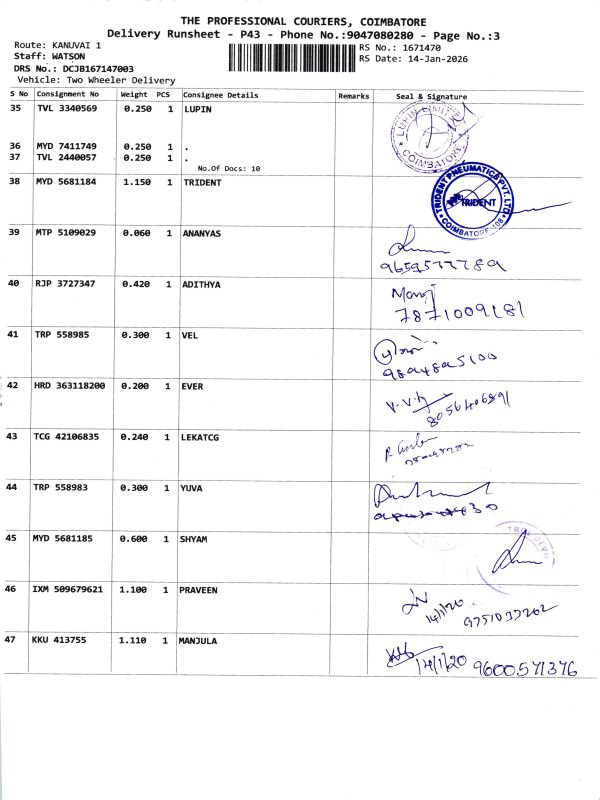 THE PROFESSIONAL COURIERS, COIMBATORE
Delivery Runsheet - P43 - Phone No.:9047080280 - Page No.:3
Route: KANUVAI 1
Staff: WATSON
DRS No.: DCJB167147003
Vehicle: Two Wheeler Delivery
RS No.: 1671470
RS Date: 14-Jan-2026
S No Consignment No Weight PCS Consignee Details Remarks Seal & Signature
35 TVL 3340569 0.250 1 LUPIN
LUPIN LIMITED
COIMBATORE
36 MYD 7411749 0.250 1 .
37 TVL 2440057 0.250 1 .
No.Of Docs: 10
38 MYD 5681184 1.150 1 TRIDENT
TRIDENT PNEUMATICS PVT. LTD.
TRIDENT
COIMBATORE
39 MTP 5109029 0.060 1 ANANYAS
40 RJP 3727347 0.420 1 ADITHYA
7871009181
41 TRP 558985 0.300 1 VEL
42 HRD 363118200 0.200 1 EVER
V.V.
8056406891
43 TCG 42106835 0.240 1 LEKATCG
44 TRP 558983 0.300 1 YUVA
45 MYD 5681185 0.600 1 SHYAM
46 IXM 509679621 1.100 1 PRAVEEN
14/1/20
9751037262
47 KKU 413755 1.110 1 MANJULA
14/1/20 9600571376